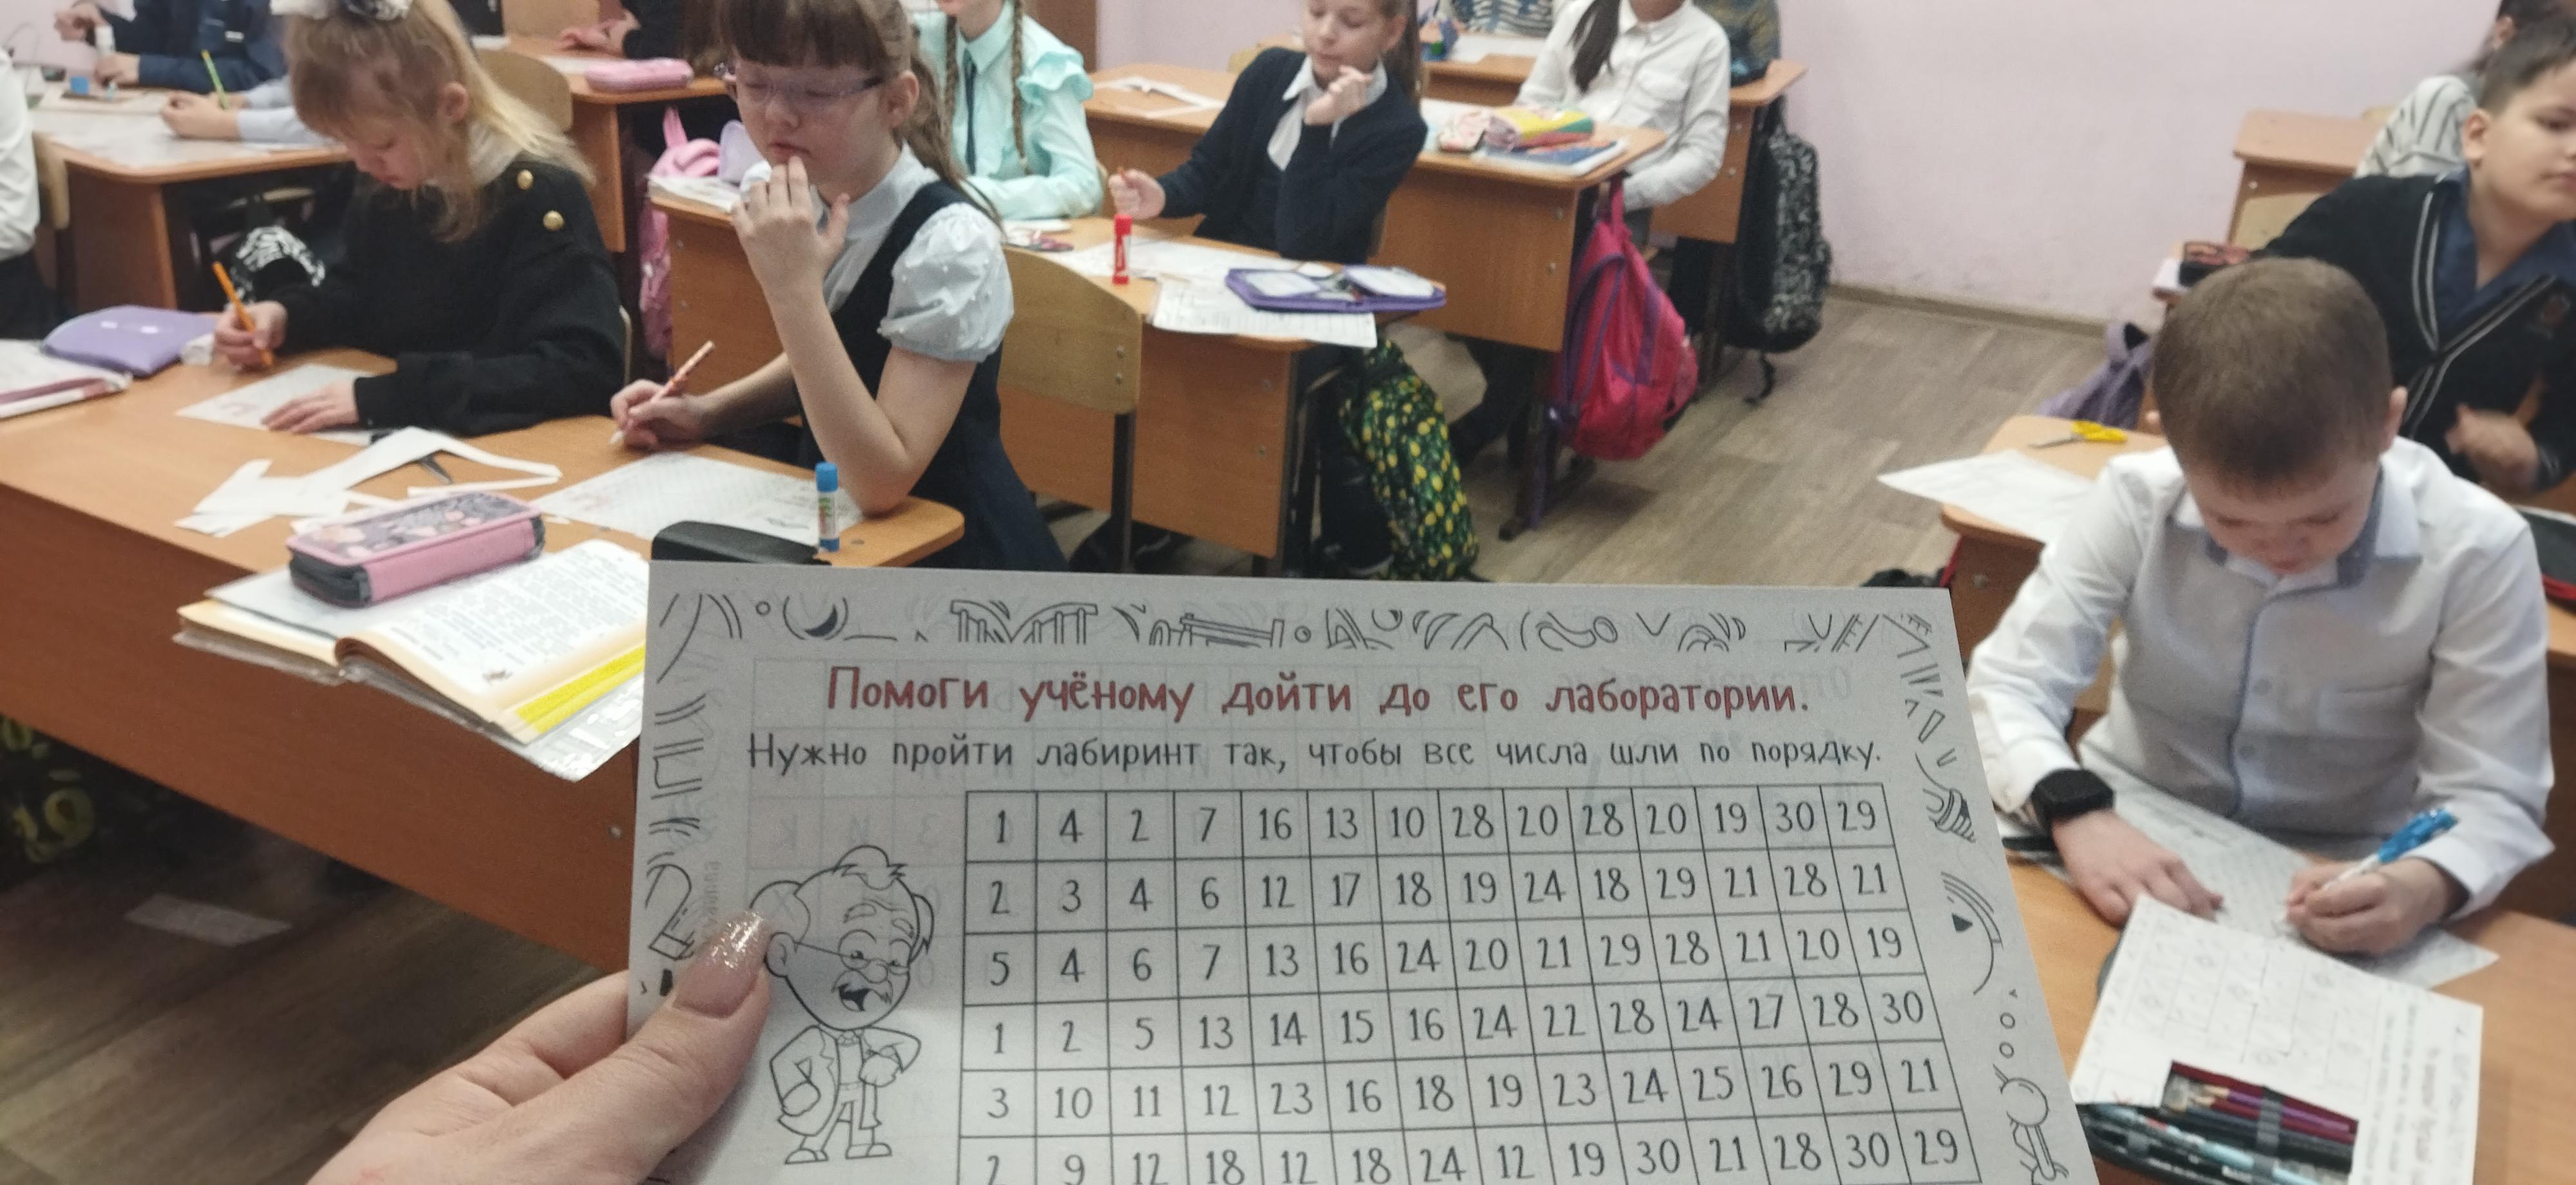 Помоги учёному дойти до его лаборатории.
Нужно пройти лабиринт так, чтобы все числа шли по порядку.
1 4 2 7 16 13 10 28 20 28 20 19 30 29
2 3 4 6 12 17 18 19 24 18 29 21 28 21
5 4 6 7 13 16 24 20 21 29 28 21 20 19
1 2 5 13 14 15 16 24 22 28 24 27 28 30
3 10 11 12 23 16 18 19 23 24 25 26 29 21
2 9 12 18 12 18 24 12 19 30 21 28 30 29